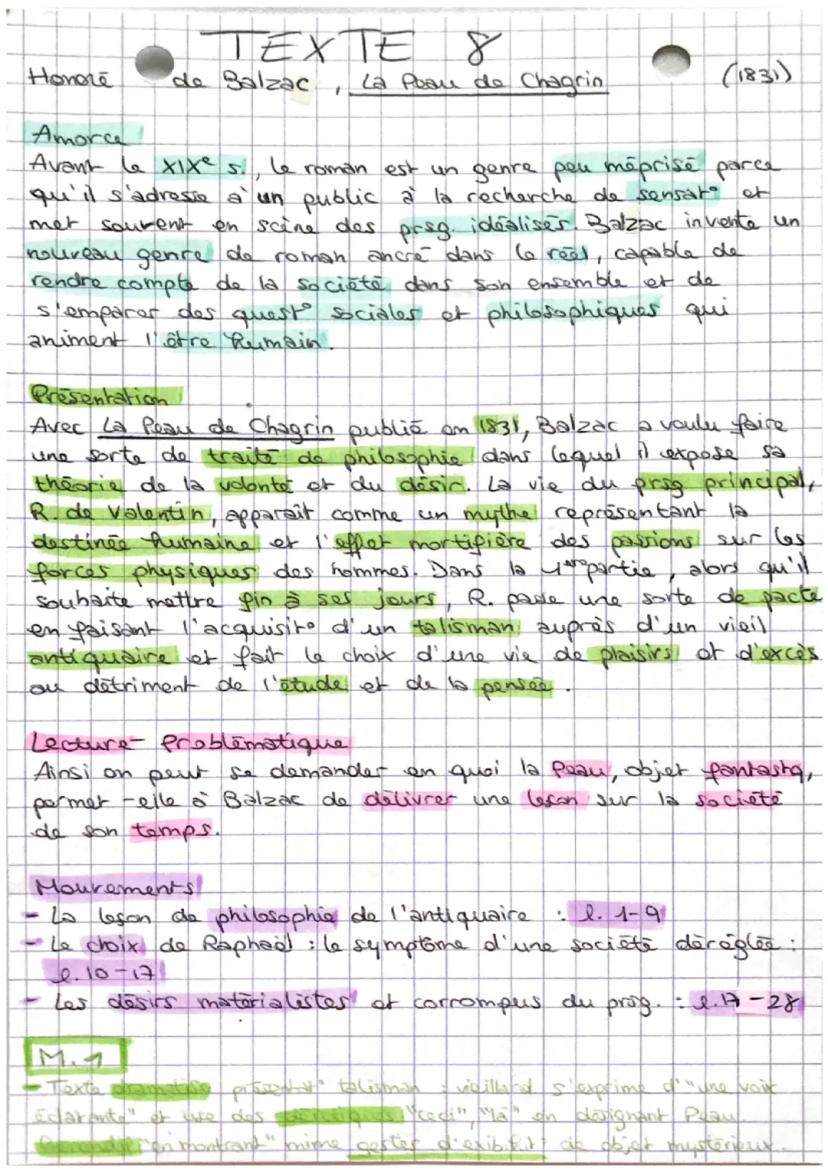 TEXTE 8
Honoré de Balzac, La Peau de Chagrin (1831)
Amorce
Avant le XIXe s., le roman est un genre peu méprisé parce
qu'il s'adresse à un public à la recherche de sensat° et
met souvent en scène des prsg. idéalisés. Balzac invente un
nouveau genre de roman ancré dans le réel, capable de
rendre compte de la société dans son ensemble et de
s'emparer des quest° sociales et philosophiques qui
animent l'être humain.
Présentation
Avec La Peau de Chagrin publié en 1831, Balzac a voulu faire
une sorte de traité de philosophie dans lequel il expose sa
théorie de la volonté et du désir. La vie du prsg principal,
R. de Valentin, apparaît comme un mythe représentant la
destinée humaine et l'effet mortifière des passions sur les
forces physiques des hommes. Dans la 1ère partie, alors qu'il
souhaite mettre fin à ses jours, R. passe une sorte de pacte
en faisant l'acquisit° d'un talisman auprès d'un vieil
antiquaire et fait le choix d'une vie de plaisirs et d'excès
au détriment de l'étude et de la pensée.
Lecture - Problématique
Ainsi on peut se demander en quoi la Peau, objet fantastq,
permet-elle à Balzac de délivrer une leçon sur la société
de son temps.
Mouvements
- La leçon de philosophie de l'antiquaire : l. 1-9
- Le choix de Raphaël : le symptôme d'une société déréglée :
l. 10-17
- Les désirs matérialistes et corrompus du prsg. : l. 17-28
M. 1
- Texte dramatise présentat° talisman : vieillard s'exprime d'"une voix
éclatante" et use des déictiques "ceci", "la" en désignant Peau.
"en montrant" mime gestes d'exibit° de objet mystérieux.